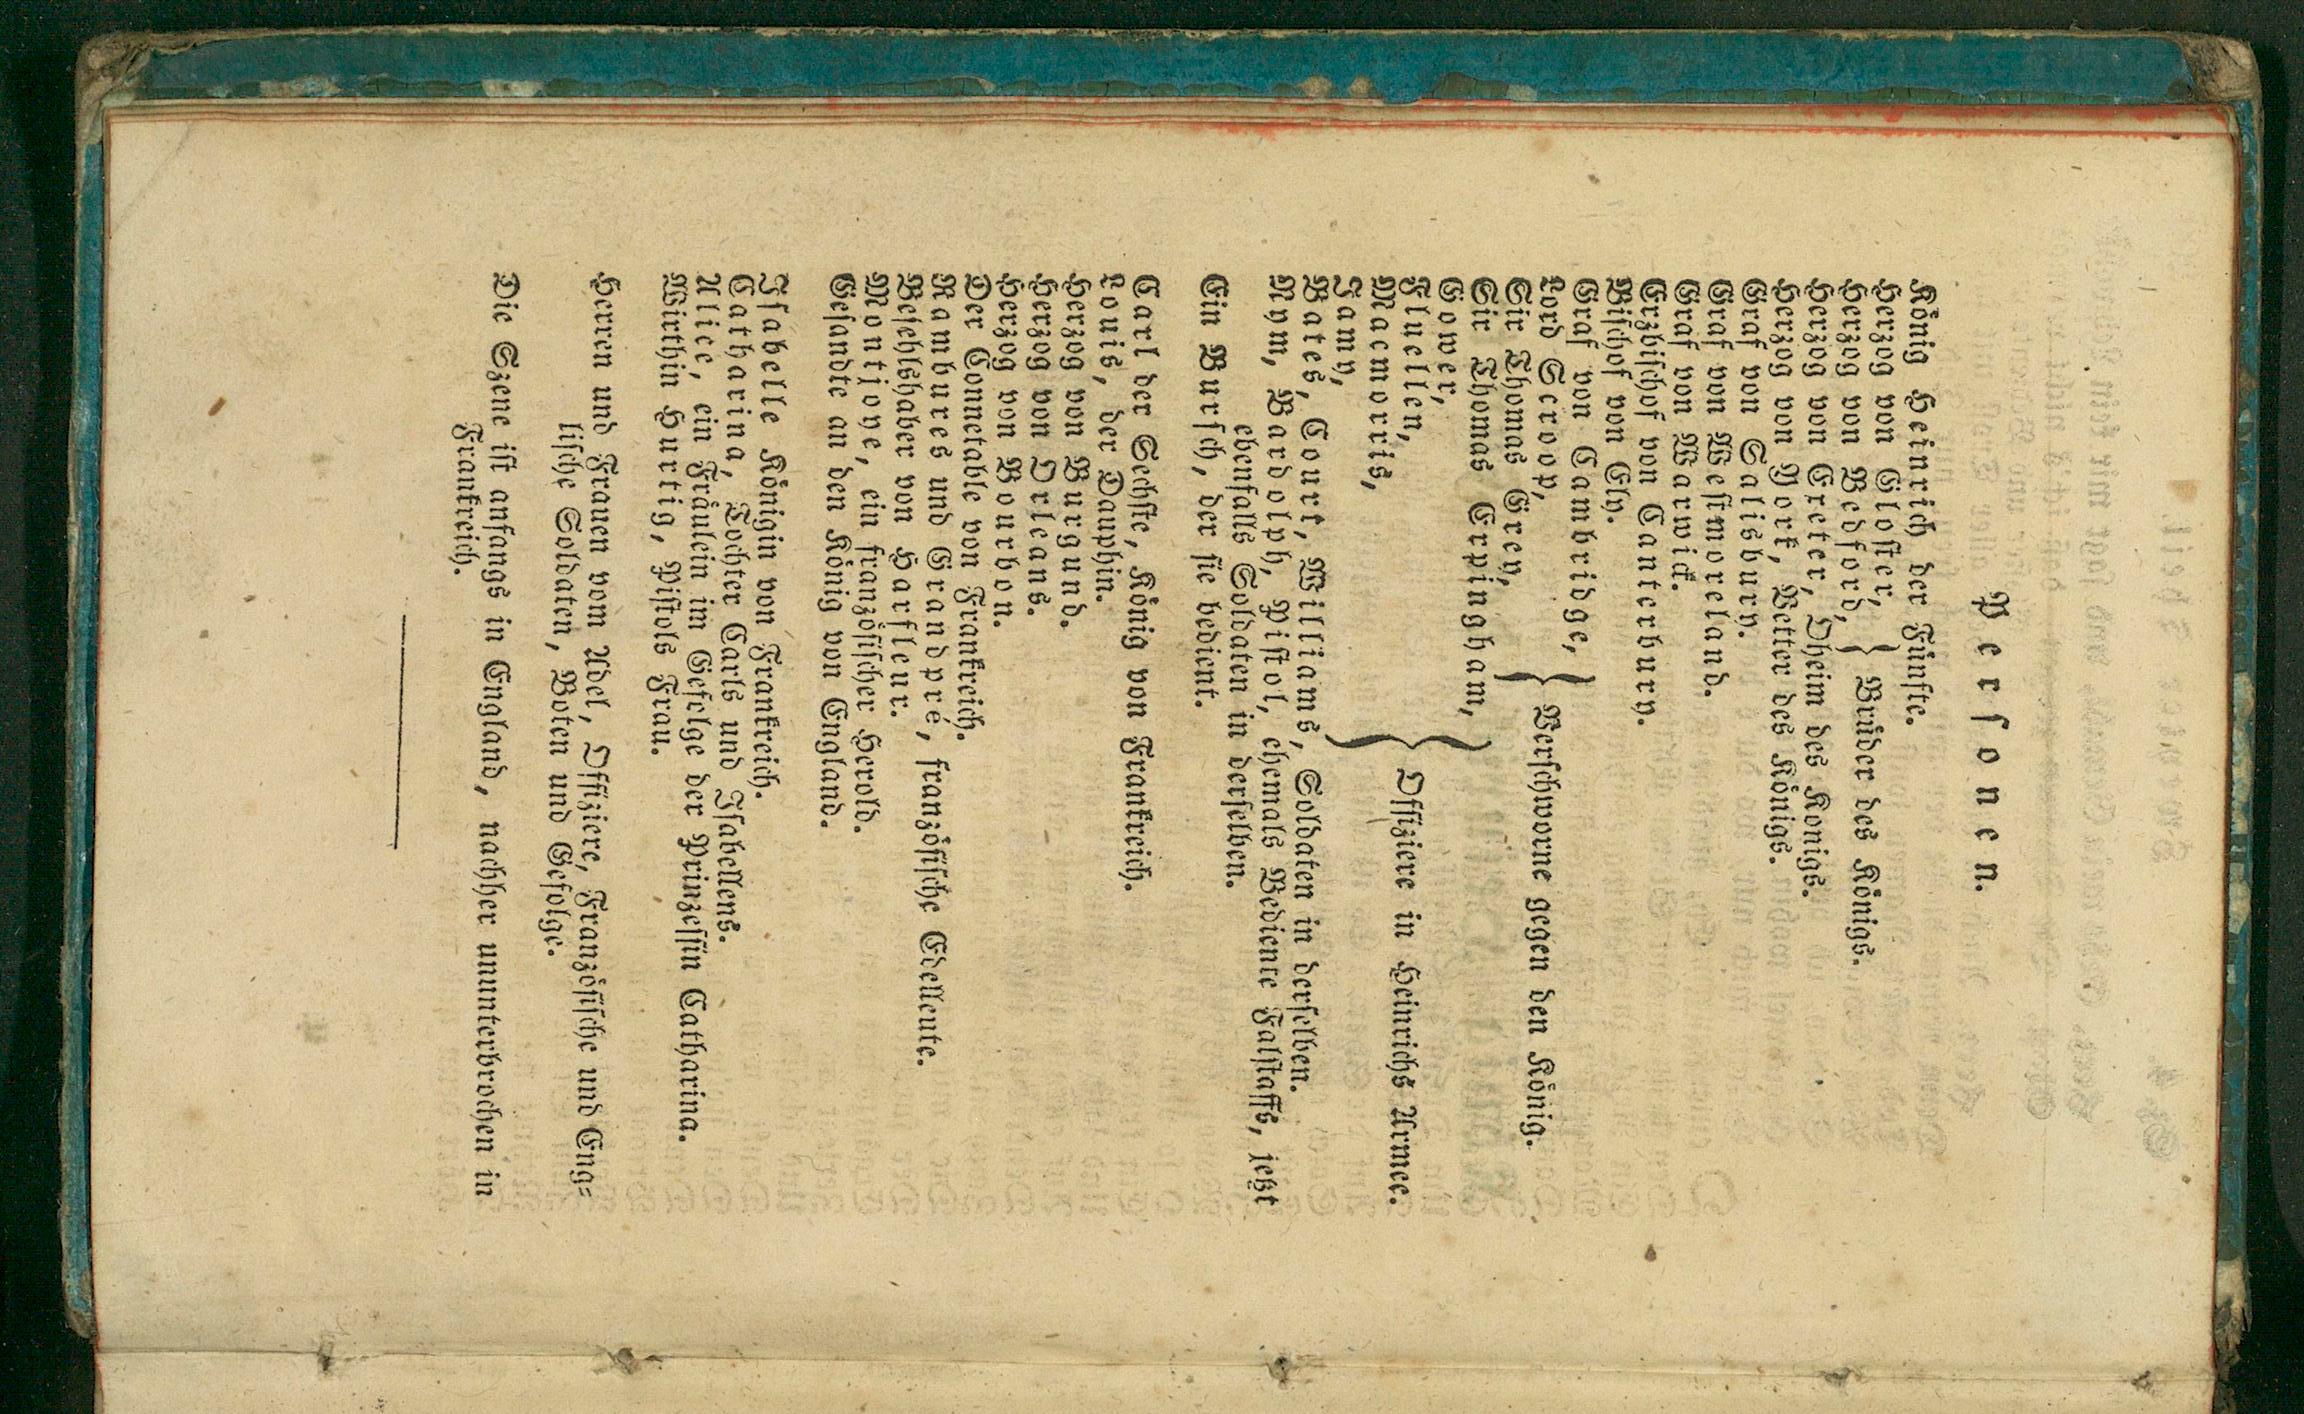 Personen.
König Heinrich der Fünfte.
Herzog von Gloster,
Herzog von Bedford, } Brüder des Königs.
Herzog von Exeter, Oheim des Konigs.
Herzog von York, Vetter des Königs.
Graf von Salisbury.
Graf von Westmoreland.
Graf von Warwick.
Erzbischof von Canterbury.
Bischof von Ely.
Graf von Cambridge,
Lord Scroop,
Sir Thomas Grey, } Verschworne gegen den König.
Sir Thomas Erpingham,
Gower,
Fluellen,
Macmorris,
Jamy, } Offiziere in Heinrichs Armee.
Bates, Court, Williams, Soldaten in derselben.
Nym, Bardolph, Pistol, ehemals Bediente Falstaffs, jetzt
ebenfalls Soldaten in derselben.
Ein Bursch, der sie bedient.
Carl der Sechste, König von Frankreich.
Louis, der Dauphin.
Herzog von Burgund.
Herzog von Orleans.
Herzog von Bourbon.
Der Connetable von Frankreich.
Rambures und Grandpré, französische Edelleute.
Befehlshaber von Harfleur.
Montjoye, ein französischer Herold.
Gesandte an den König von England.
Isabelle Königin von Frankreich.
Catharina, Tochter Carls und Isabellens.
Alice, ein Fräulein im Gefolge der Prinzessin Catharina.
Wirthin Hurtig, Pistols Frau.
Herren und Frauen vom Adel, Offiziere, Französische und Eng-
lische Soldaten, Boten und Gefolge.
Die Szene ist anfangs in England, nachher ununterbrochen in
Frankreich.